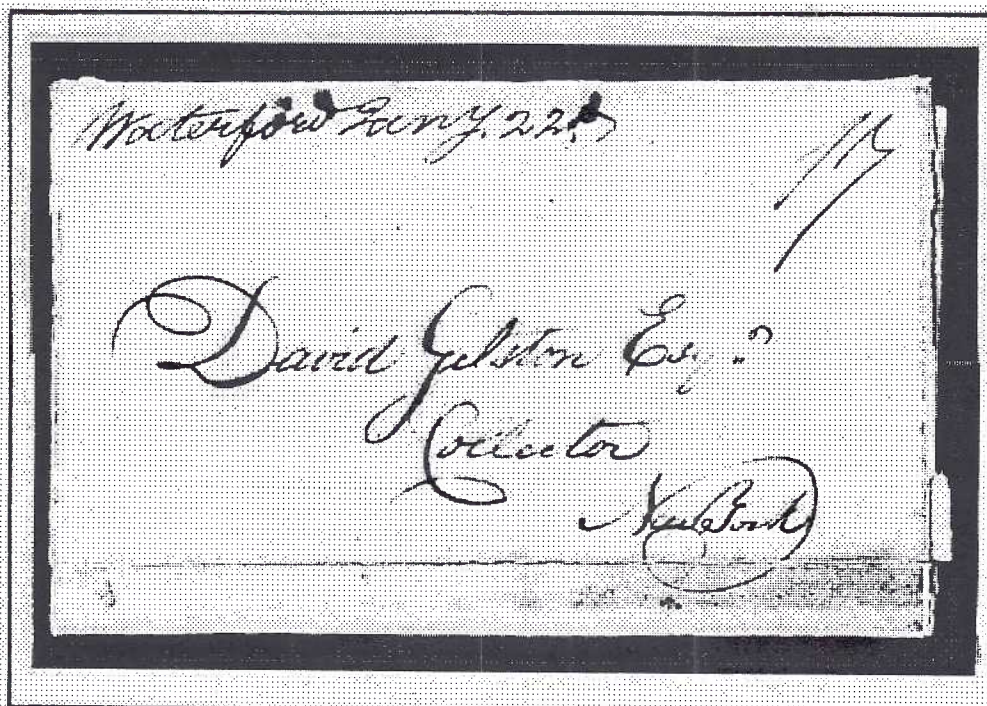 Waterford Jany. 22d
17
David Gelston Esqr.
Collector
New York